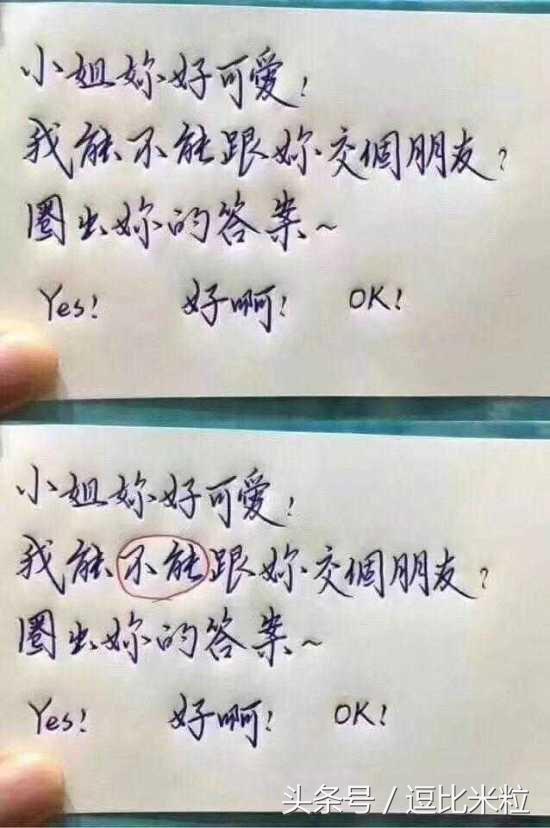 小姐妳好可愛,
我能不能跟妳交個朋友?
圈出妳的答案~
Yes! 好啊! OK!
小姐妳好可愛,
我能不能跟妳交個朋友?
圈出妳的答案~
Yes! 好啊! OK!
头条号 / 逗比米粒